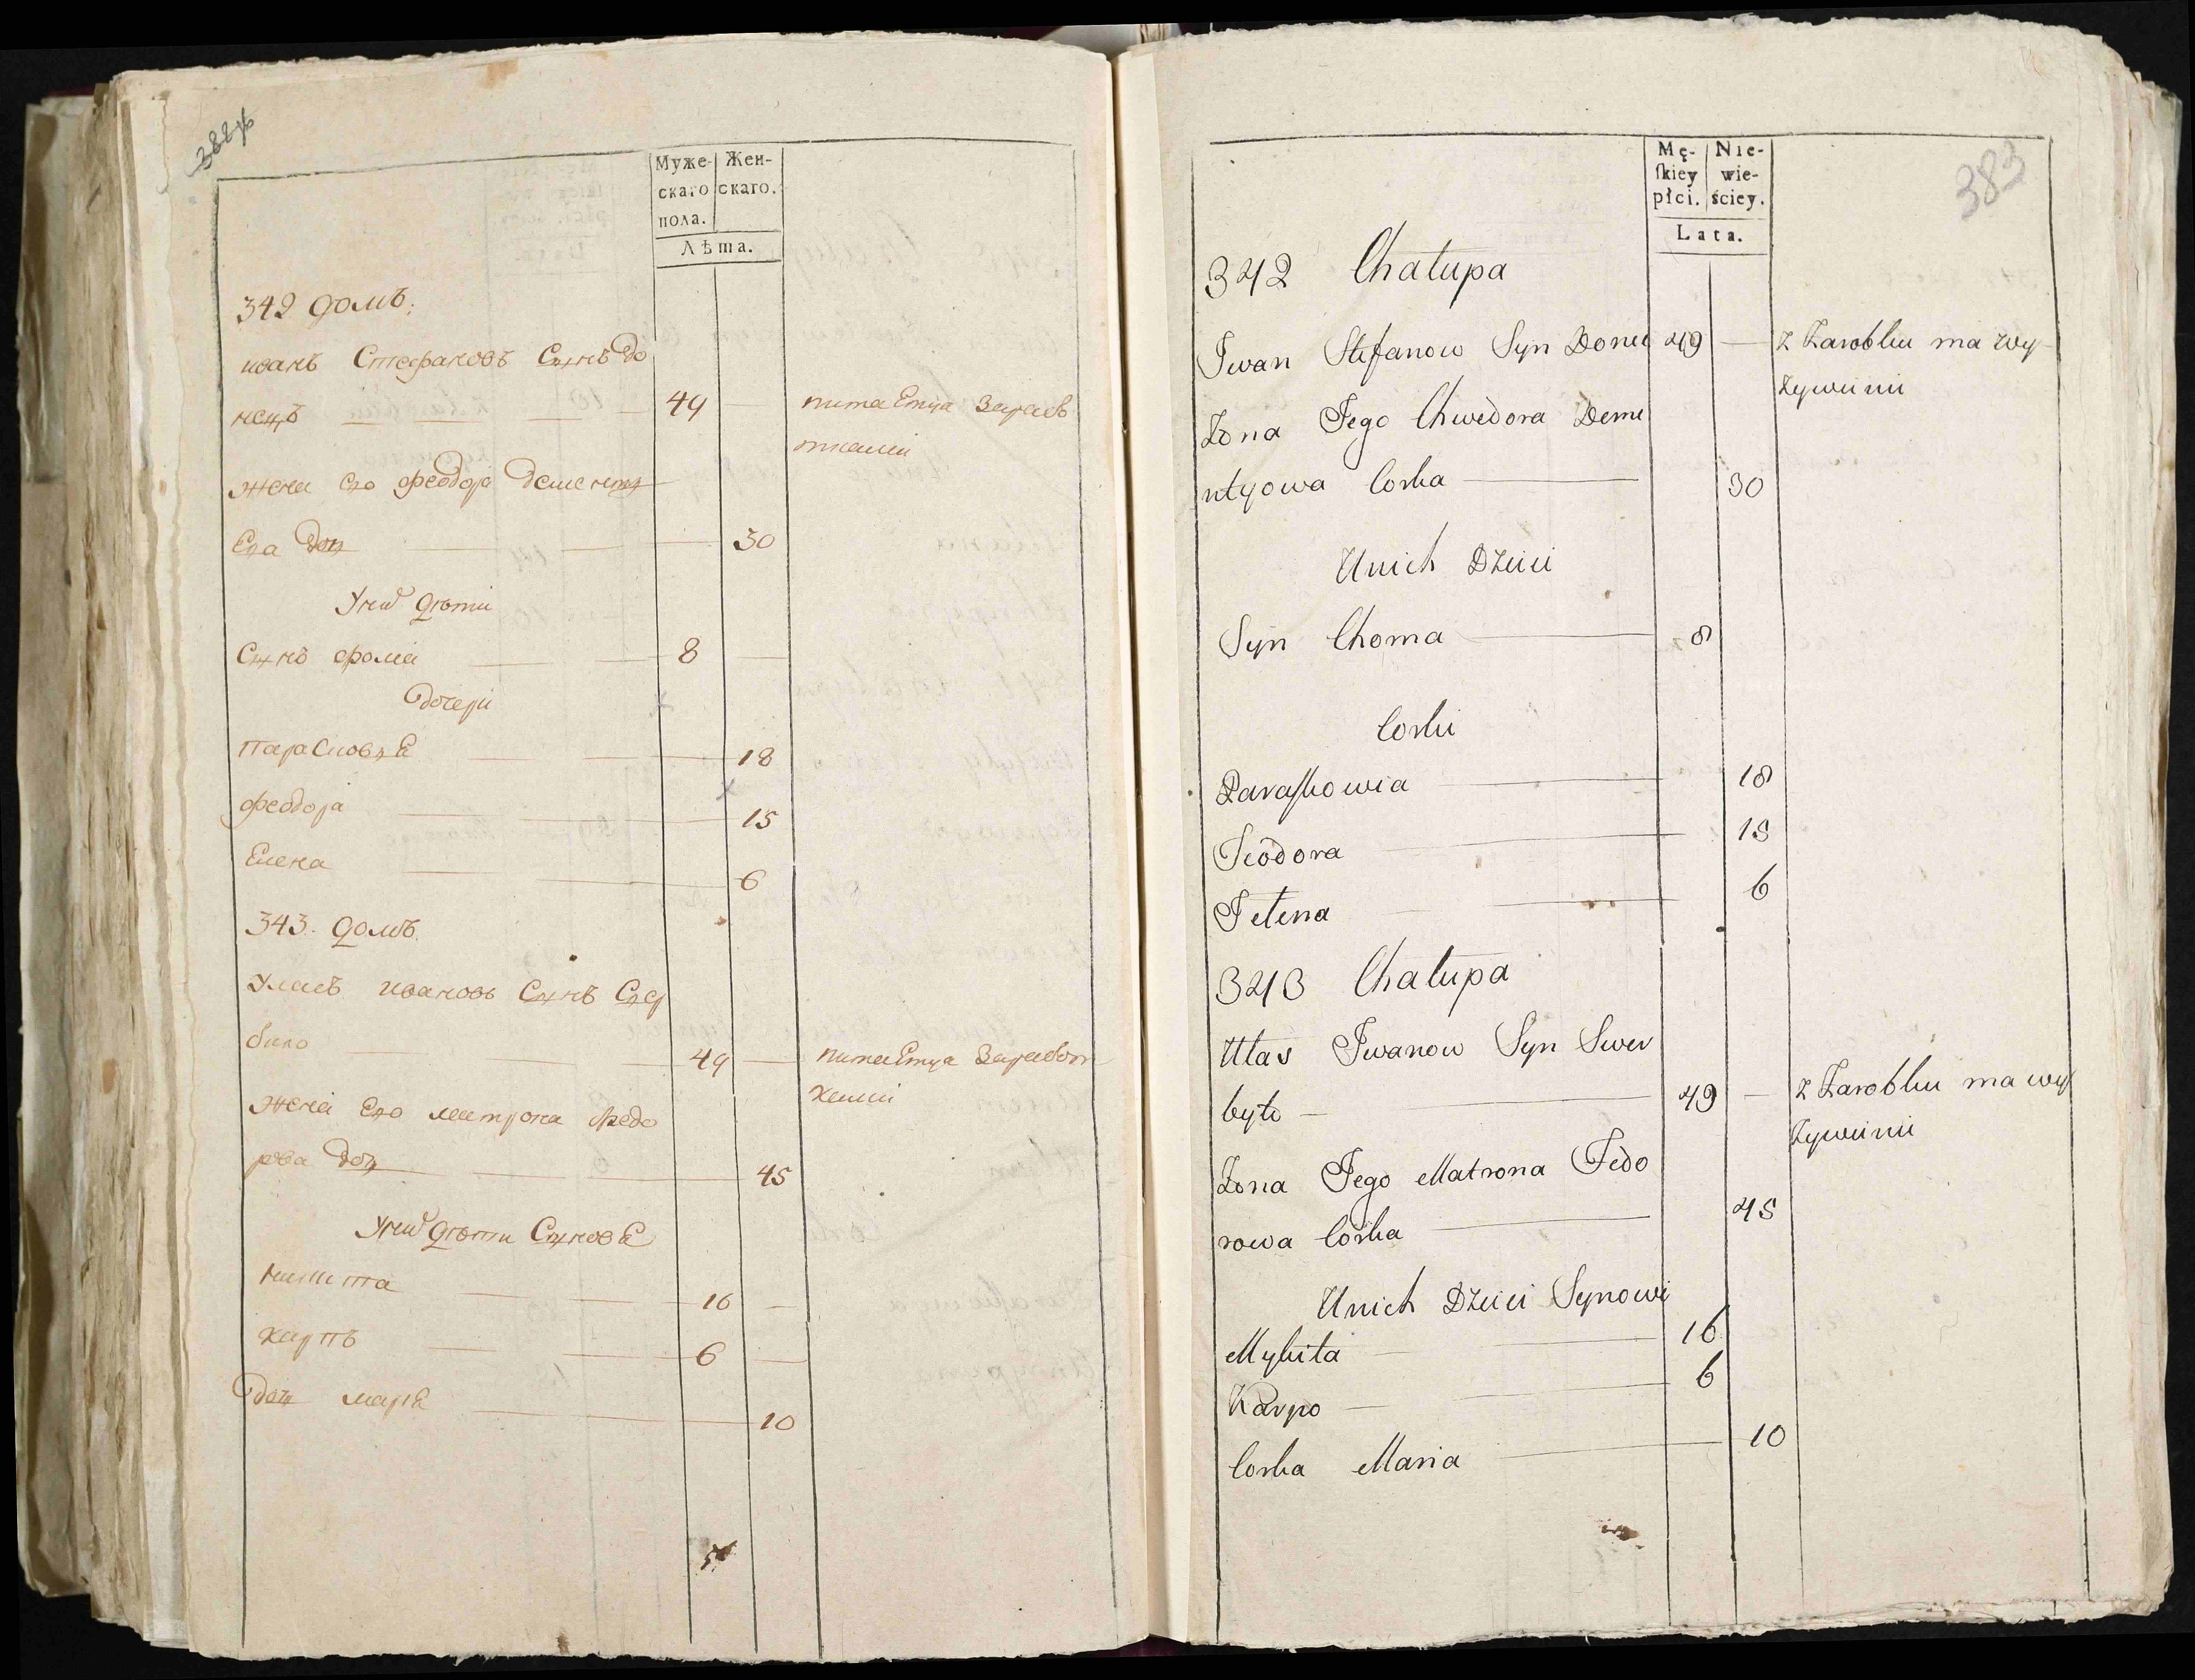 382 об
Муже-
скаго
пола.
Жен-
скаго.
Лѣта.
342 домъ.
иванъ Стефановъ Сынъ До
нецъ 49 питаЕтца Зараб
откамі
жена Его феодора Дементь
Ева Доч 30
У ных дѣти
Сынъ фома 8
дочери
параСковьЕ 18
феодора 15
Елена 6
343. домъ.
Уласъ ивановъ Сынъ Свер
било 49 питаЕтца Заработ
камі
жена Его матрона Федо
рова Доч 45
У ных дѣти СыновЕ
микита 16
карпъ 6
доч марЕ 10
383
Mę-
ſkiey
płci.
Nie-
wie-
ściey.
Lata.
342 Chałupa
Jwan Stefanow Syn Donec 49 z Zarobku ma wy-
żywienie
Żona Jego Chwedora Deme
ntyowa Corka 30
Unich Dzieci
Syn Choma 8
Corki
Paraſkowia 18
Teodora 15
Jełena 6
343 Chałupa
Ułas Jwanow Syn Swer
było 49 z Zarobku ma wy
żywienie
Żona Jego Matrona Fedo
rowa Corka 45
Unich Dzieci Synowi
Mykita 16
Karpo 6
Corka Maria 10